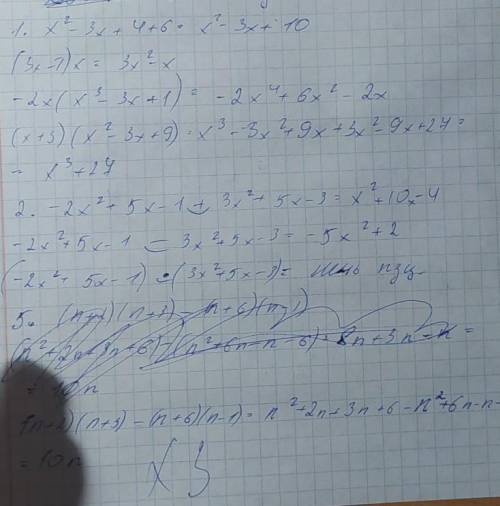 1. x² - 3x + 4 + 6 = x² - 3x + 10
(3x-1)x = 3x² - x
-2x(x³ - 3x + 1) = -2x⁴ + 6x² - 2x
(x+3)(x² - 3x + 9) = x³ - 3x² + 9x + 3x² - 9x + 27 =
= x³ + 27
2. -2x² + 5x - 1 + 3x² + 5x - 3 = x² + 10x - 4
-2x² + 5x - 1 - 3x² + 5x - 3 = -5x² + 2
(-2x² + 5x - 1) · (3x² + 5x - 3) = лень
5. (n+2)(n+3) - (n+6)(n-1)
(n² + 2n + 3n + 6) - (n² + 6n - n - 6) =
= 10n
(n+3) - (n+6)(n-1) = n² + 2n + 3n + 6 - n² + 6n - n -
= 10n
х З